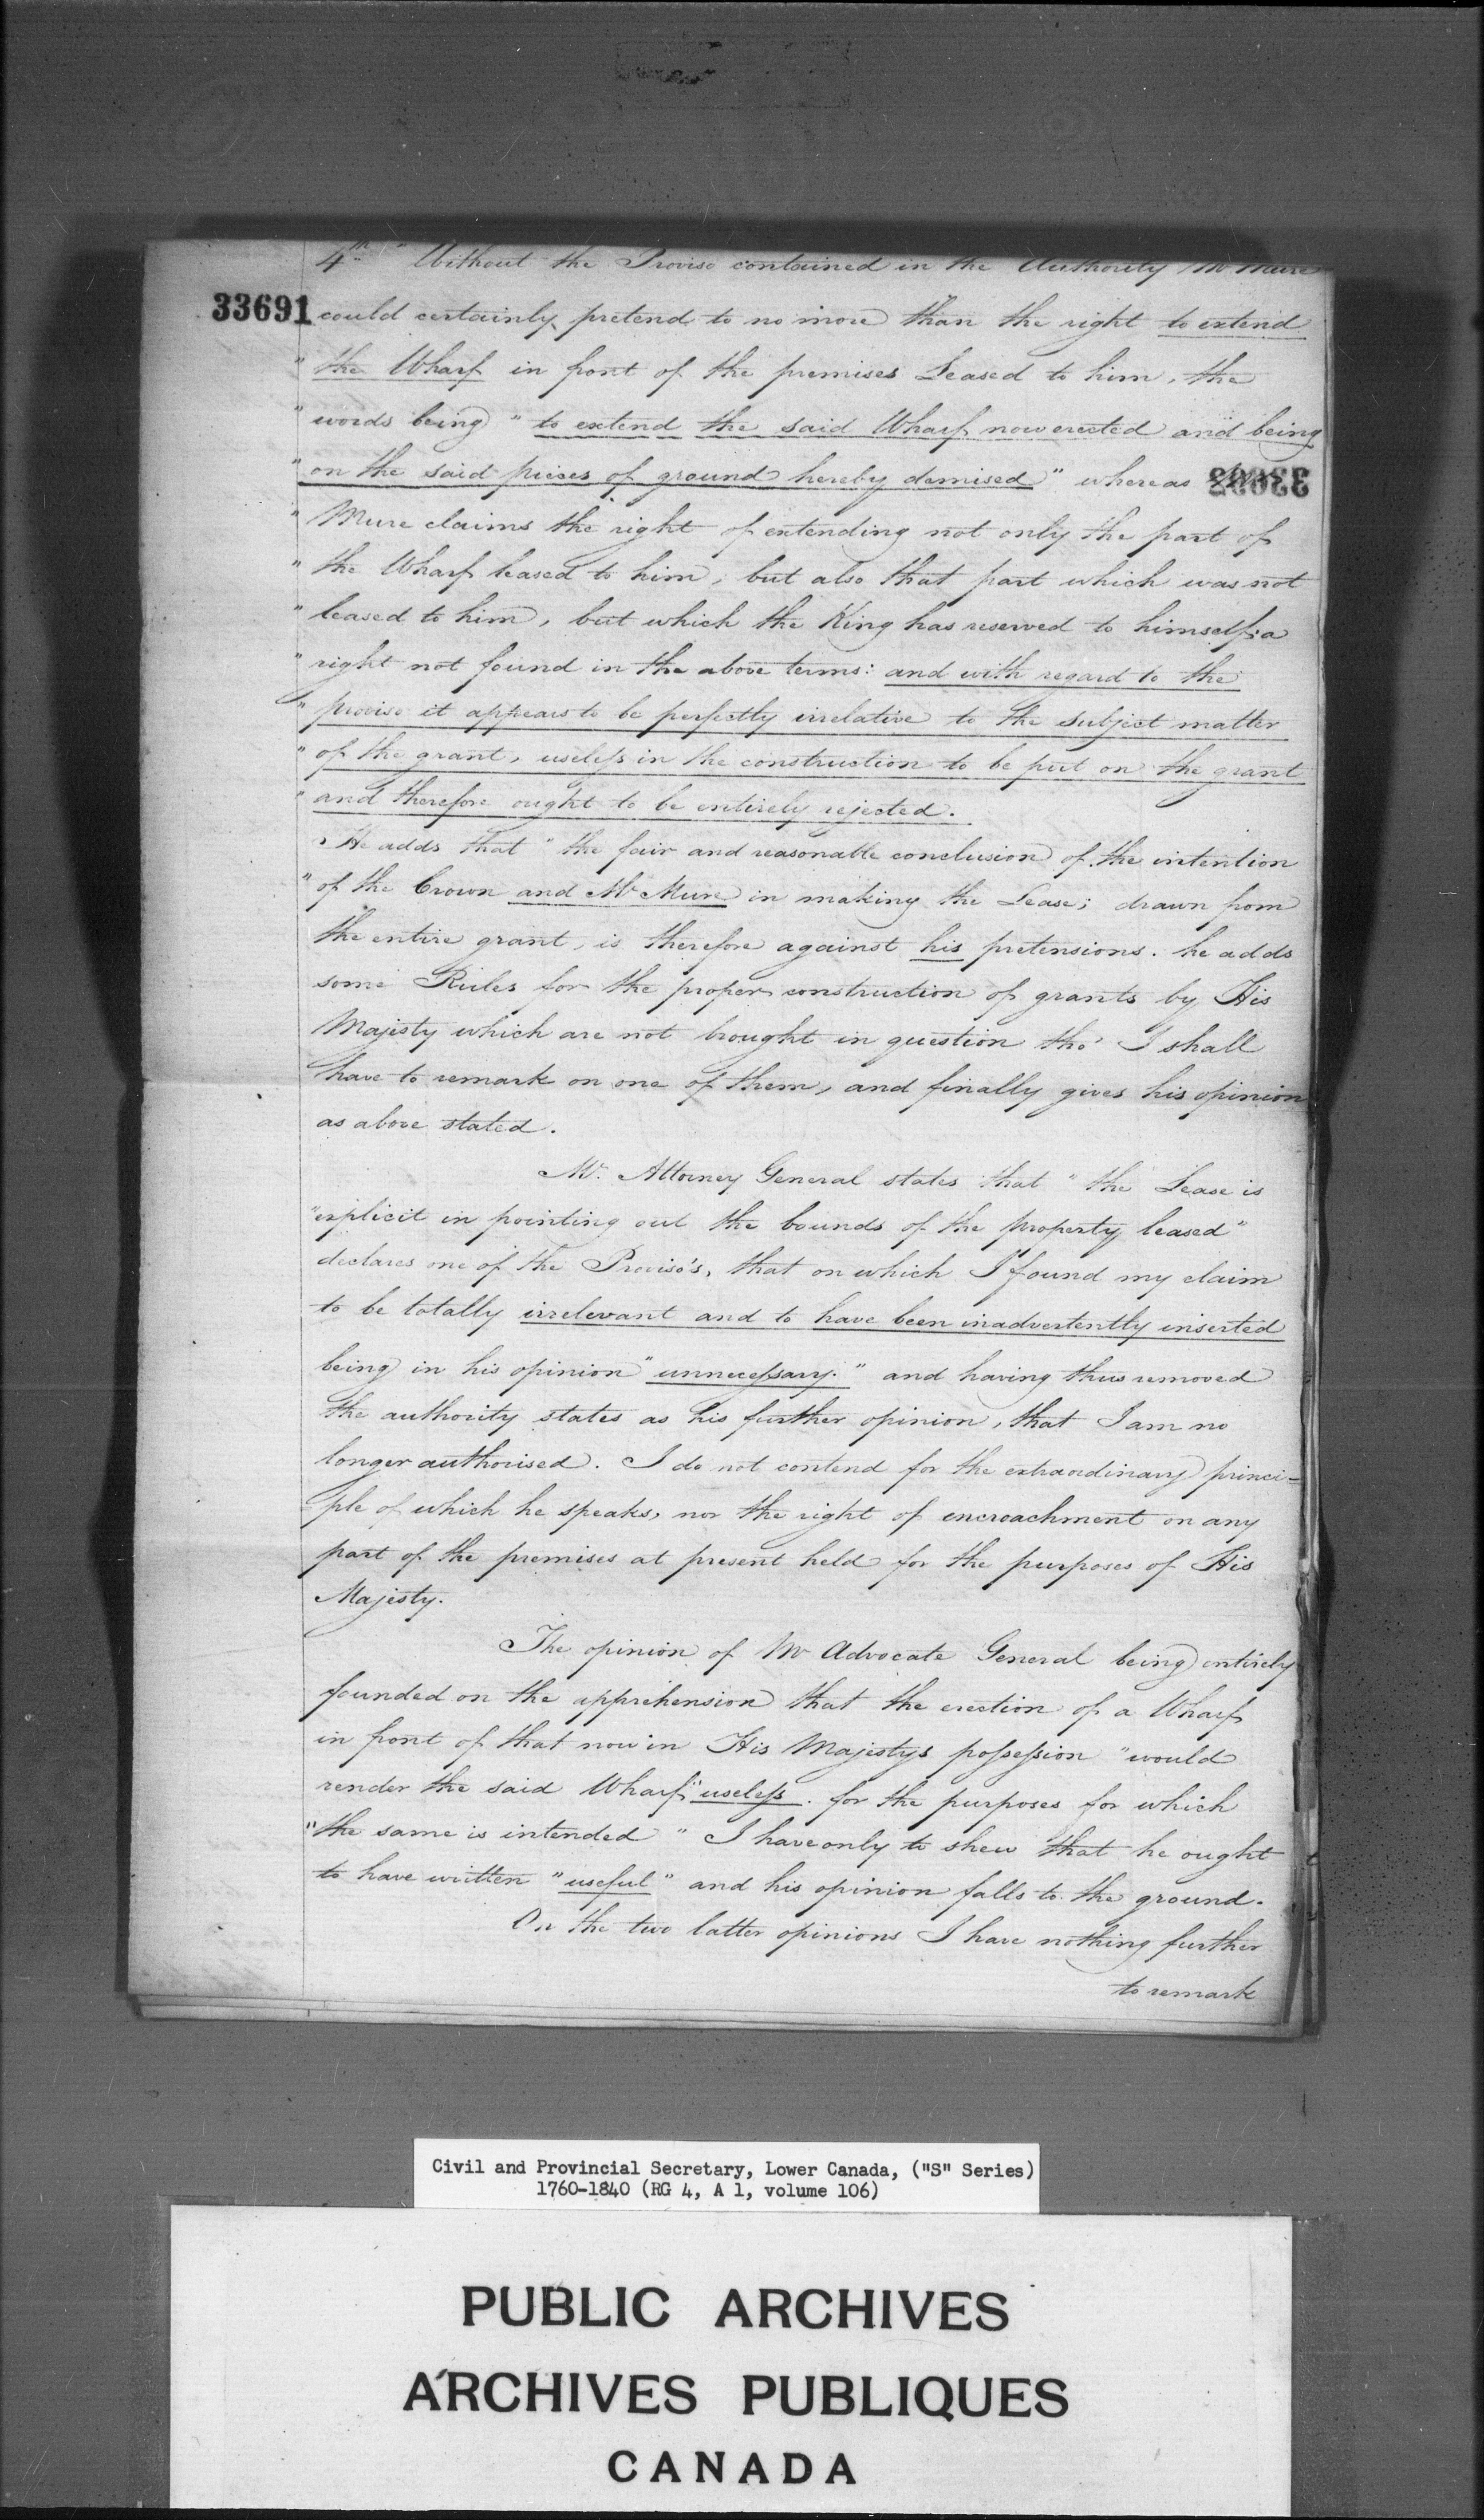 4th " Without the Proviso contained in the Authority Mr Mure
33691 could certainly pretend to no more than the right to extend
" the Wharf in front of the premises Leased to him, the
" words being " to extend the said Wharf now erected and being
" on the said pieces of ground hereby demised " whereas Mr
" Mure claims the right of extending not only the part of
" the Wharf leased to him, but also that part which was not
" leased to him, but which the King has reserved to himself; a
" right not found in the above terms: and with regard to the
" proviso it appears to be perfectly irrelative to the subject matter
" of the grant, useless in the construction to be put on the grant
" and therefore ought to be entirely rejected.
He adds that " the fair and reasonable conclusion of the intention
" of the Crown and Mr Mure in making the Lease; drawn from
the entire grant, is therefore against his pretensions. he adds
some Rules for the proper construction of grants by His
Majesty which are not brought in question tho' I shall
have to remark on one of them, and finally gives his opinion
as above stated.
Mr. Attorney General states that " the Lease is
" explicit in pointing out the bounds of the property leased "
declares one of the Proviso's, that on which I found my claim
to be totally irrelevant and to have been inadvertently inserted
being in his opinion " unnecessary. " and having thus removed
the authority states as his further opinion, that I am no
longer authorised. I do not contend for the extraordinary princi=
ple of which he speaks, nor the right of encroachment on any
part of the premises at present held for the purposes of His
Majesty.
The opinion of Mr Advocate General being entirely
founded on the apprehension that the erection of a Wharf
in front of that now in His Majestys possession " would
render the said Wharf " useless. for the purposes for which
" the same is intended " I have only to shew that he ought
to have written " useful " and his opinion falls to the ground.
On the two latter opinions I have nothing further
to remark
Civil and Provincial Secretary, Lower Canada, ("S" Series)
1760-1840 (RG 4, A 1, volume 106)
PUBLIC ARCHIVES
ARCHIVES PUBLIQUES
CANADA